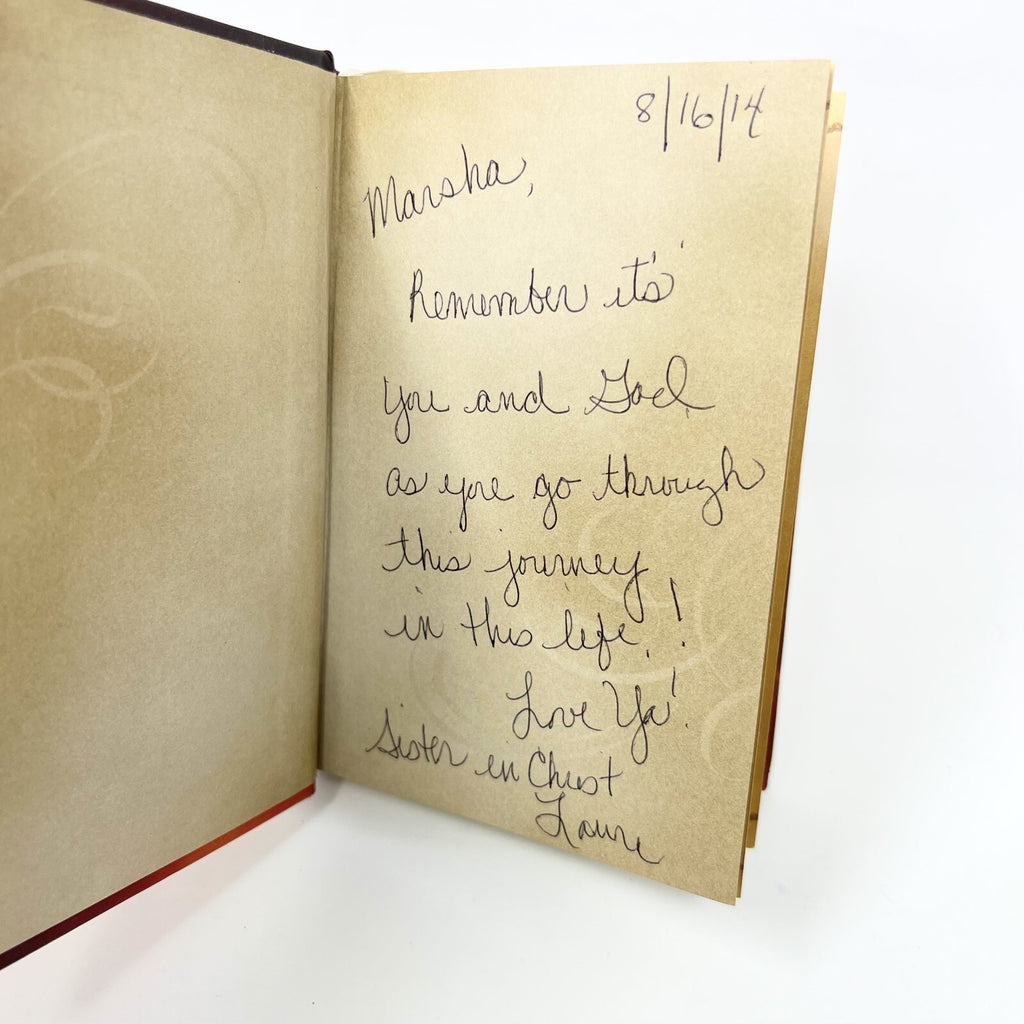 8/16/14
Marsha,
Remember it's
you and God
as you go through
this journey
in this life!
Love Ya!
Sister in Christ